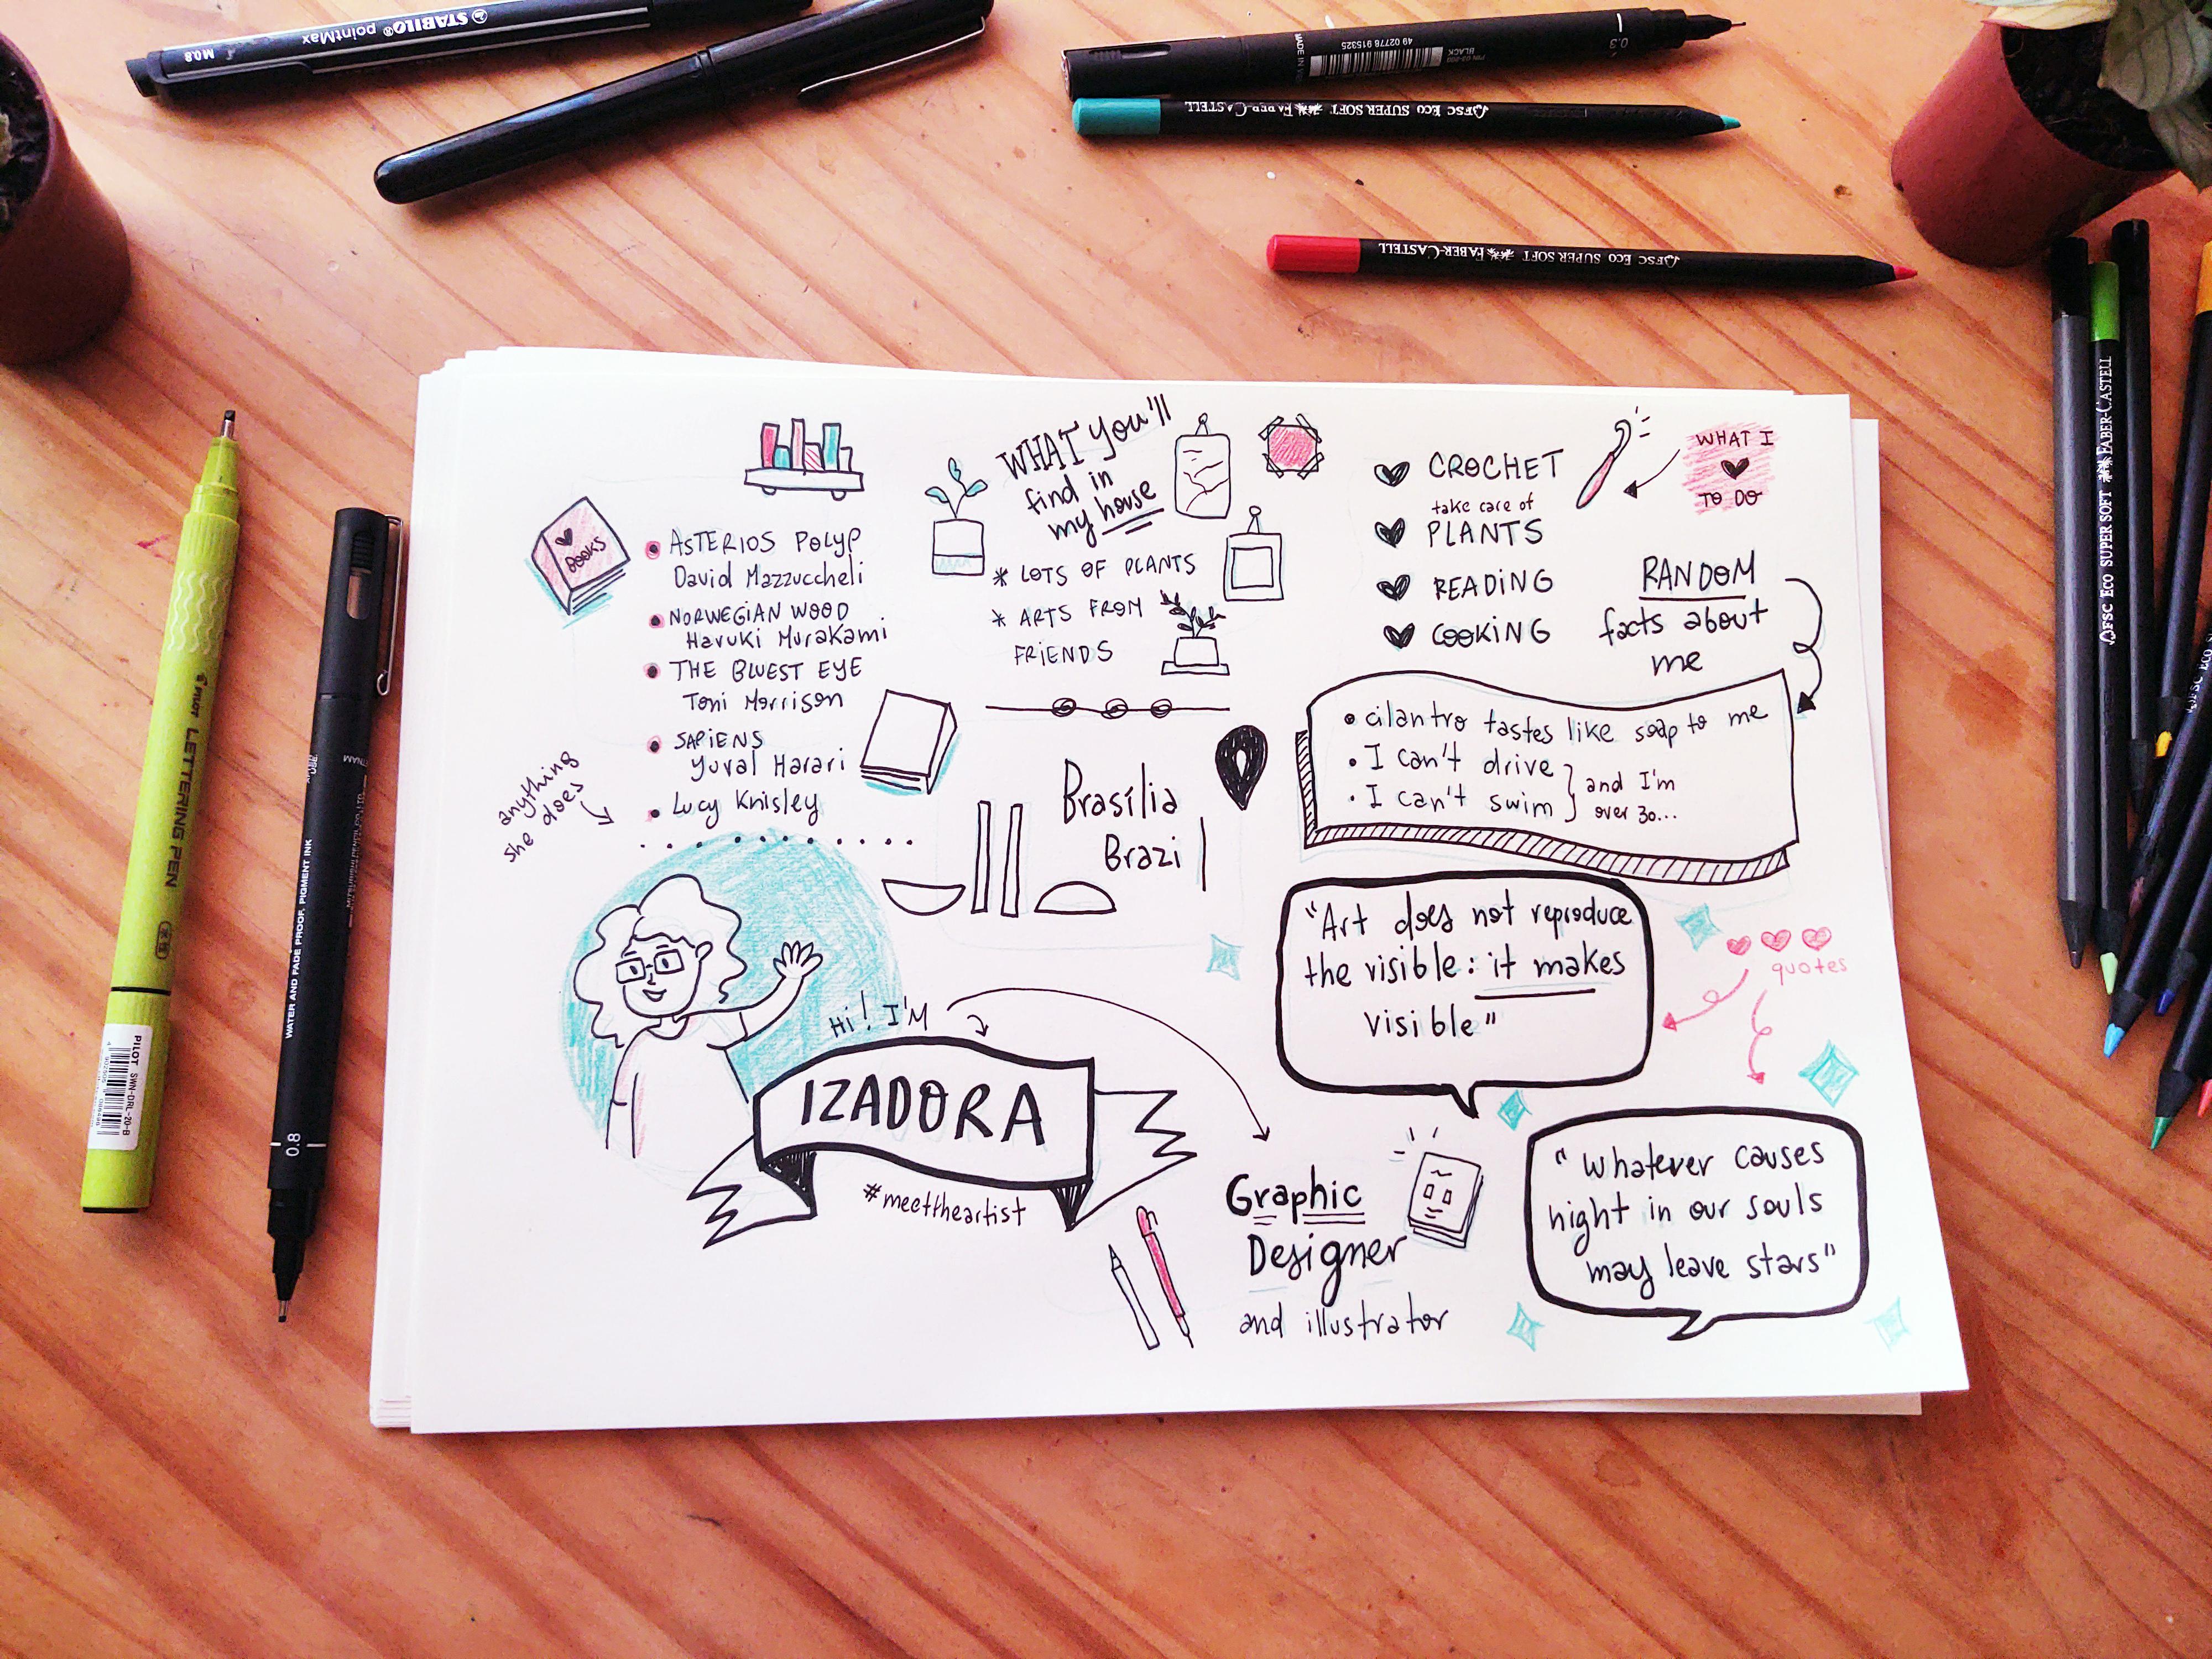 STABILO® pointMax
M 0.8
MADE IN
49 02778 915325
PIN 03-200
BLACK
0.3
FSC ECO SUPER SOFT FABER-CASTELL
FSC ECO SUPER SOFT FABER-CASTELL
WHAT YOU'll
find in
my house
* LOTS OF PLANTS
* ARTS FROM
FRIENDS
BOOKS
• ASTERIOS POLYP
David Mazzuccheli
• NORWEGIAN WOOD
Haruki Murakami
• THE BLUEST EYE
Toni Morrison
• SAPIENS
Yuval Harari
• Lucy Knisley
anything
she does
CROCHET
take care of
PLANTS
READING
COOKING
WHAT I
TO DO
RANDOM
facts about
me
• cilantro tastes like soap to me
• I can't drive
• I can't swim
and I'm
over 30...
Brasília
Brazil
"Art does not reproduce
the visible: it makes
visible"
quotes
"Whatever causes
night in our souls
may leave stars"
Hi! I'M
IZADORA
#meettheartist
Graphic
Designer
and illustrator
PILOT LETTERING PEN
PILOT SWN-DRL-20-B
WATER AND FADE PROOF, PIGMENT INK
0.8
FSC ECO SUPER SOFT FABER-CASTELL